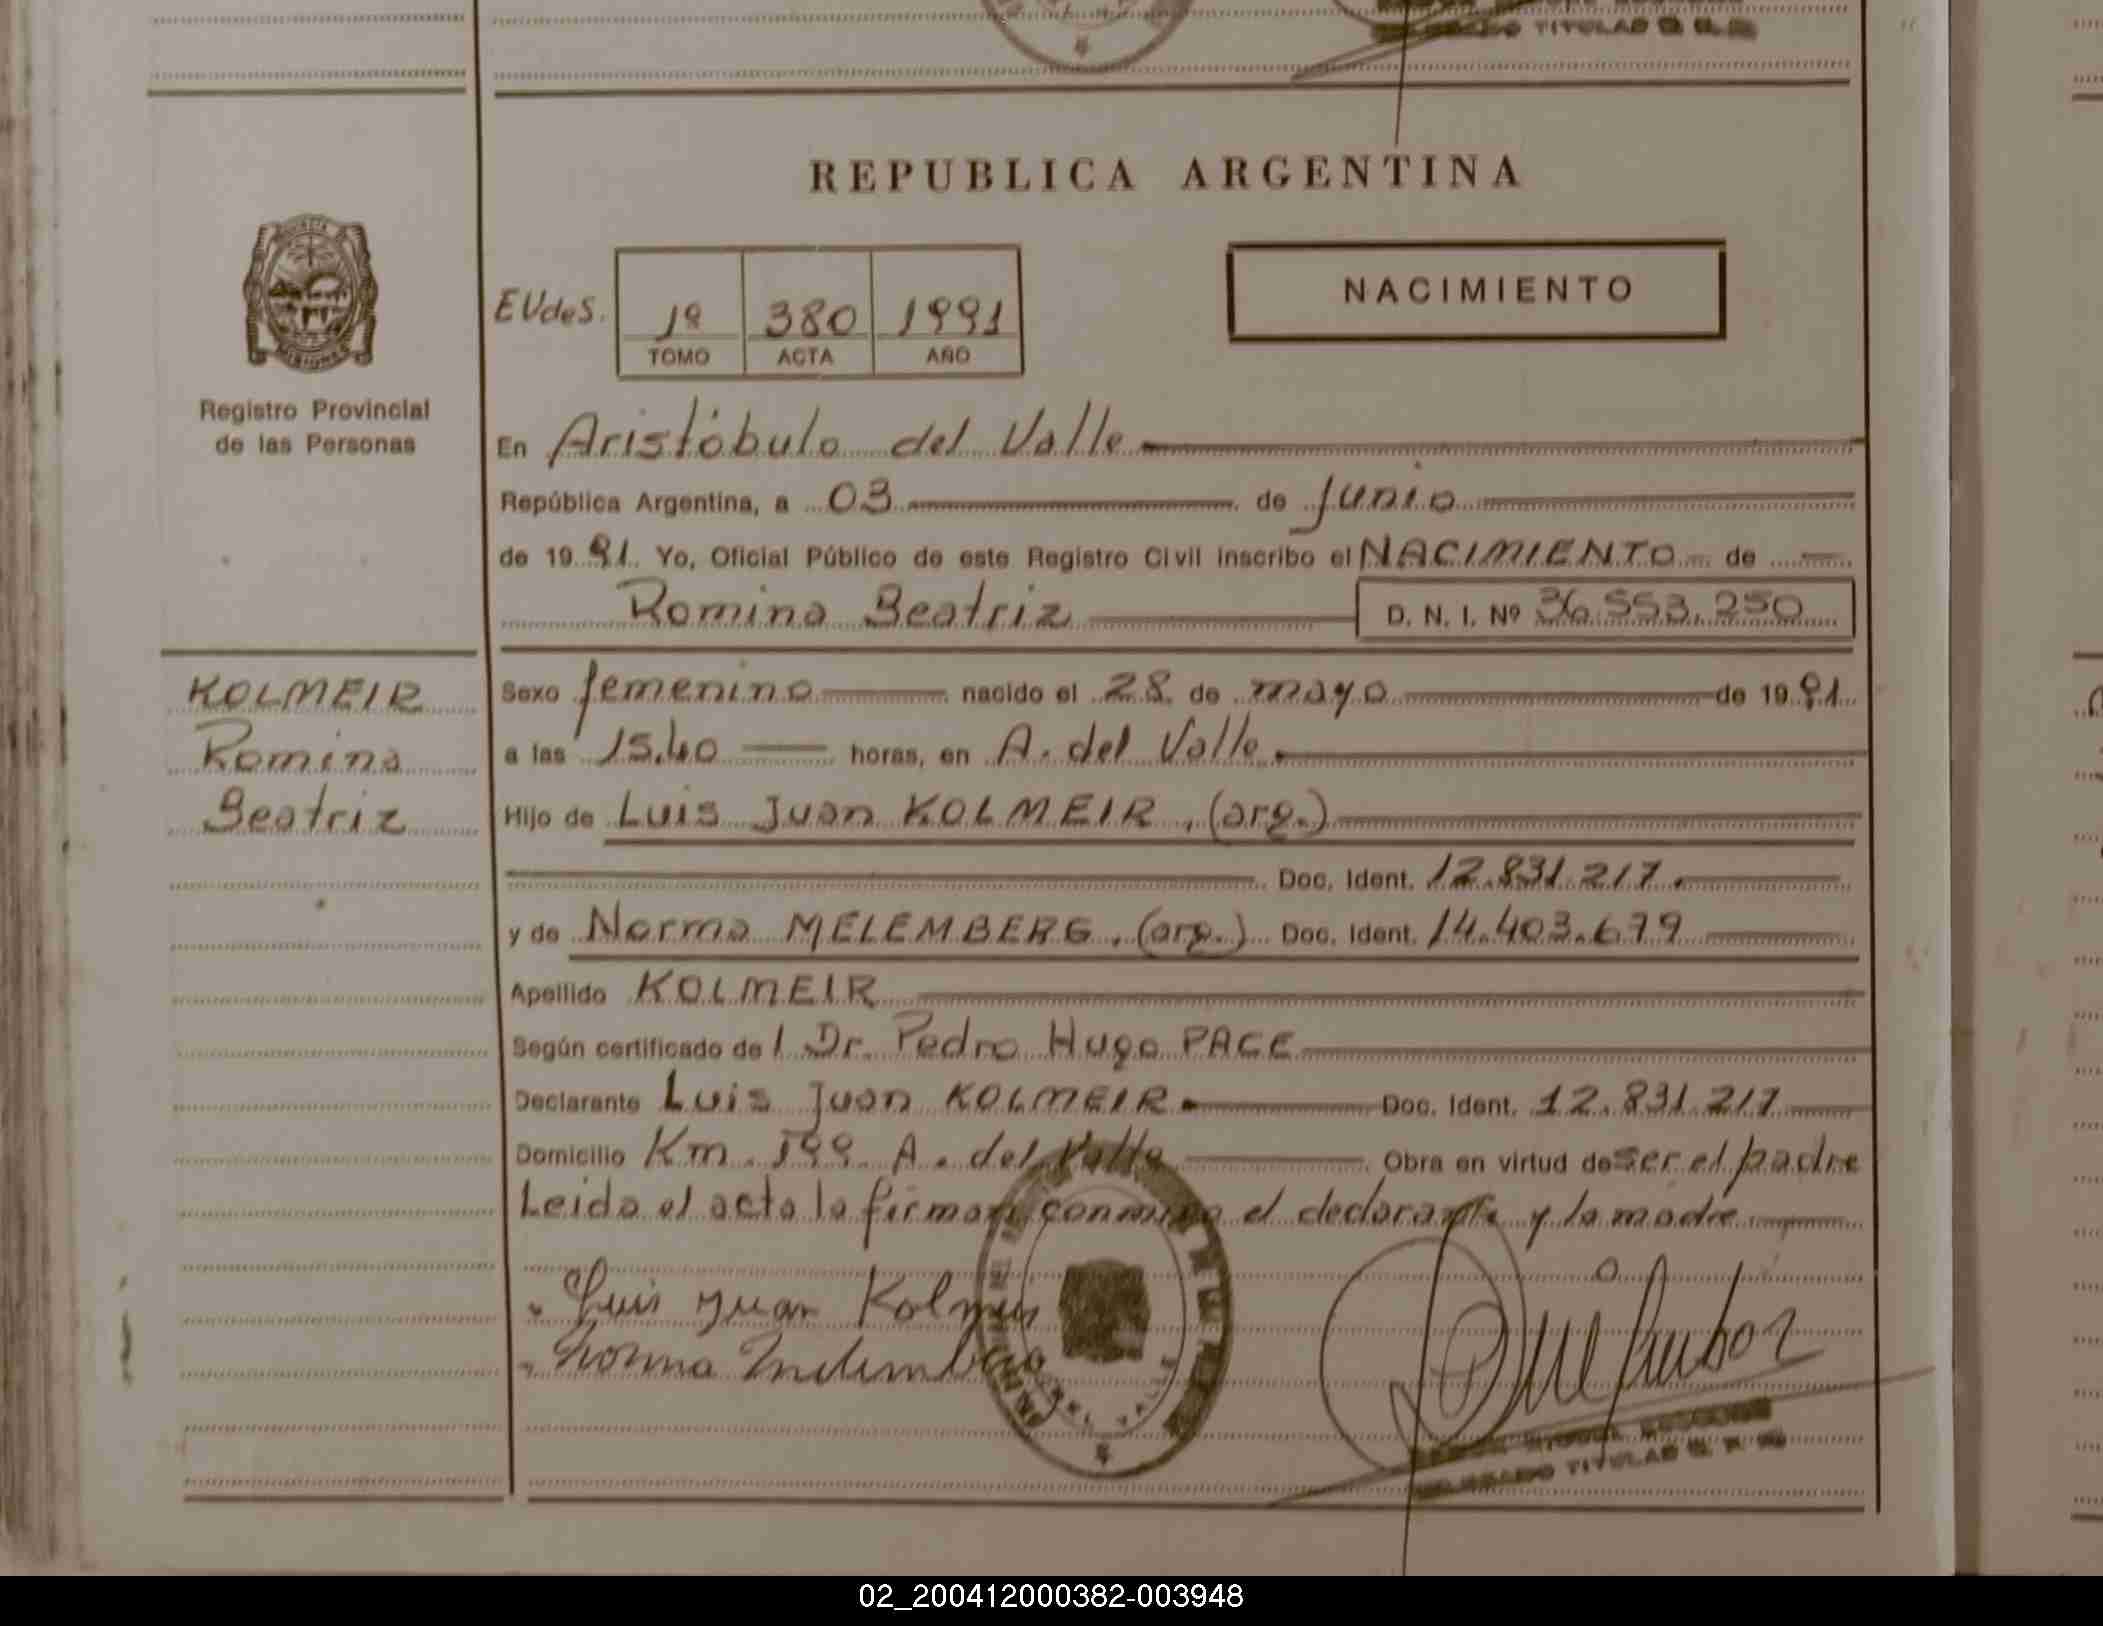 TITULAR
REPUBLICA ARGENTINA
NACIMIENTO
EVdeS.
1º 380 1991
TOMO ACTA AÑO
Registro Provincial
de las Personas
En Aristóbulo del Valle
República Argentina, a 03 de Junio
de 19 91 Yo, Oficial Público de este Registro Civil inscribo el NACIMIENTO de
Romina Beatriz D. N. I. Nº 36.553.250
KOLMEIR
Romina
Beatriz
Sexo femenino nacido el 28 de mayo de 19 91
a las 15.40 horas, en A. del Valle
Hijo de Luis Juan KOLMEIR, (arg.)
Doc. Ident. 12.831.217
y de Norma MELEMBERG, (arg.) Doc. Ident. 14.403.679
Apellido KOLMEIR
Según certificado de l Dr. Pedro Hugo PACE
Declarante Luis Juan KOLMEIR Doc. Ident. 12.831.217
Domicilio Km. 199 A. del Valle Obra en virtud de ser el padre
Leida el acta la firman conmigo el declarante y la madre
Luis Juan Kolmeir
Norma
DEL VALLE
TITULAR
02_200412000382-003948